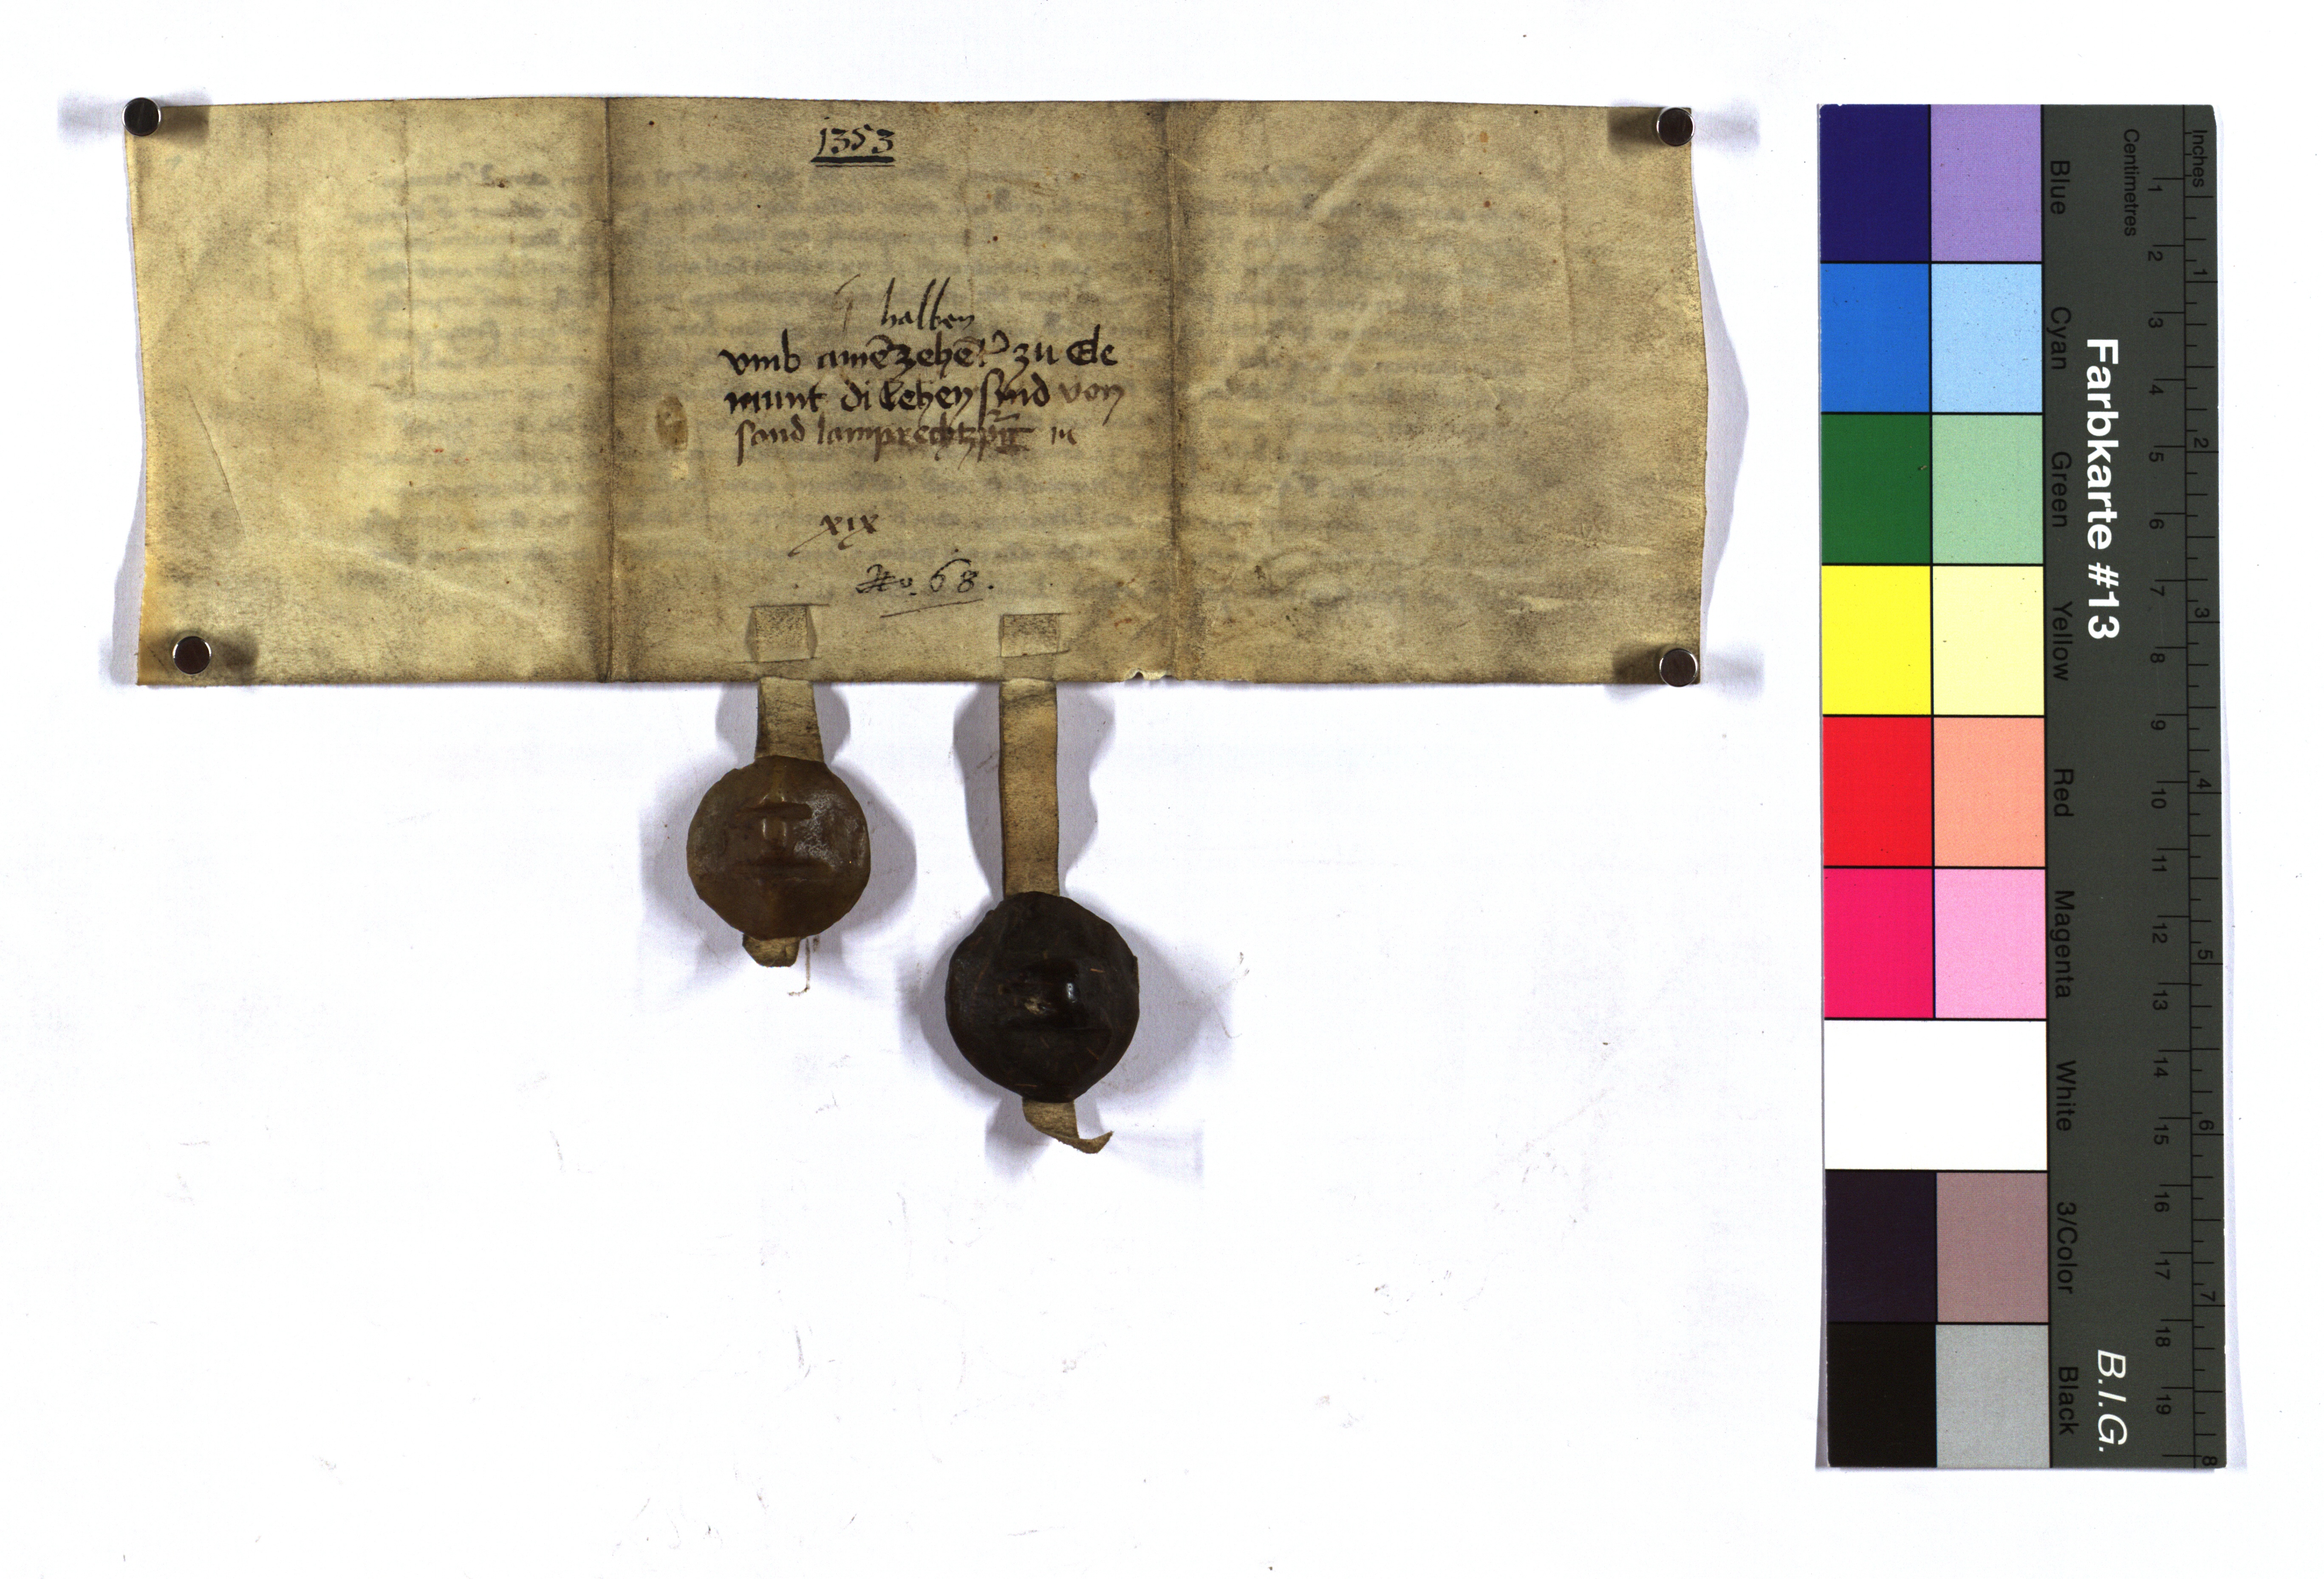 1353
halben
vmb ainē zehēt zu Ele
munt di Lehen sind von
sand lamprechtz
xix
No. 68.
Farbkarte #13
B.I.G.
Blue
Cyan
Green
Yellow
Red
Magenta
White
3/Color
Black
Centimetres
1
2
3
4
5
6
7
8
9
10
11
12
13
14
15
16
17
18
19
Inches
1
2
3
4
5
6
7
8